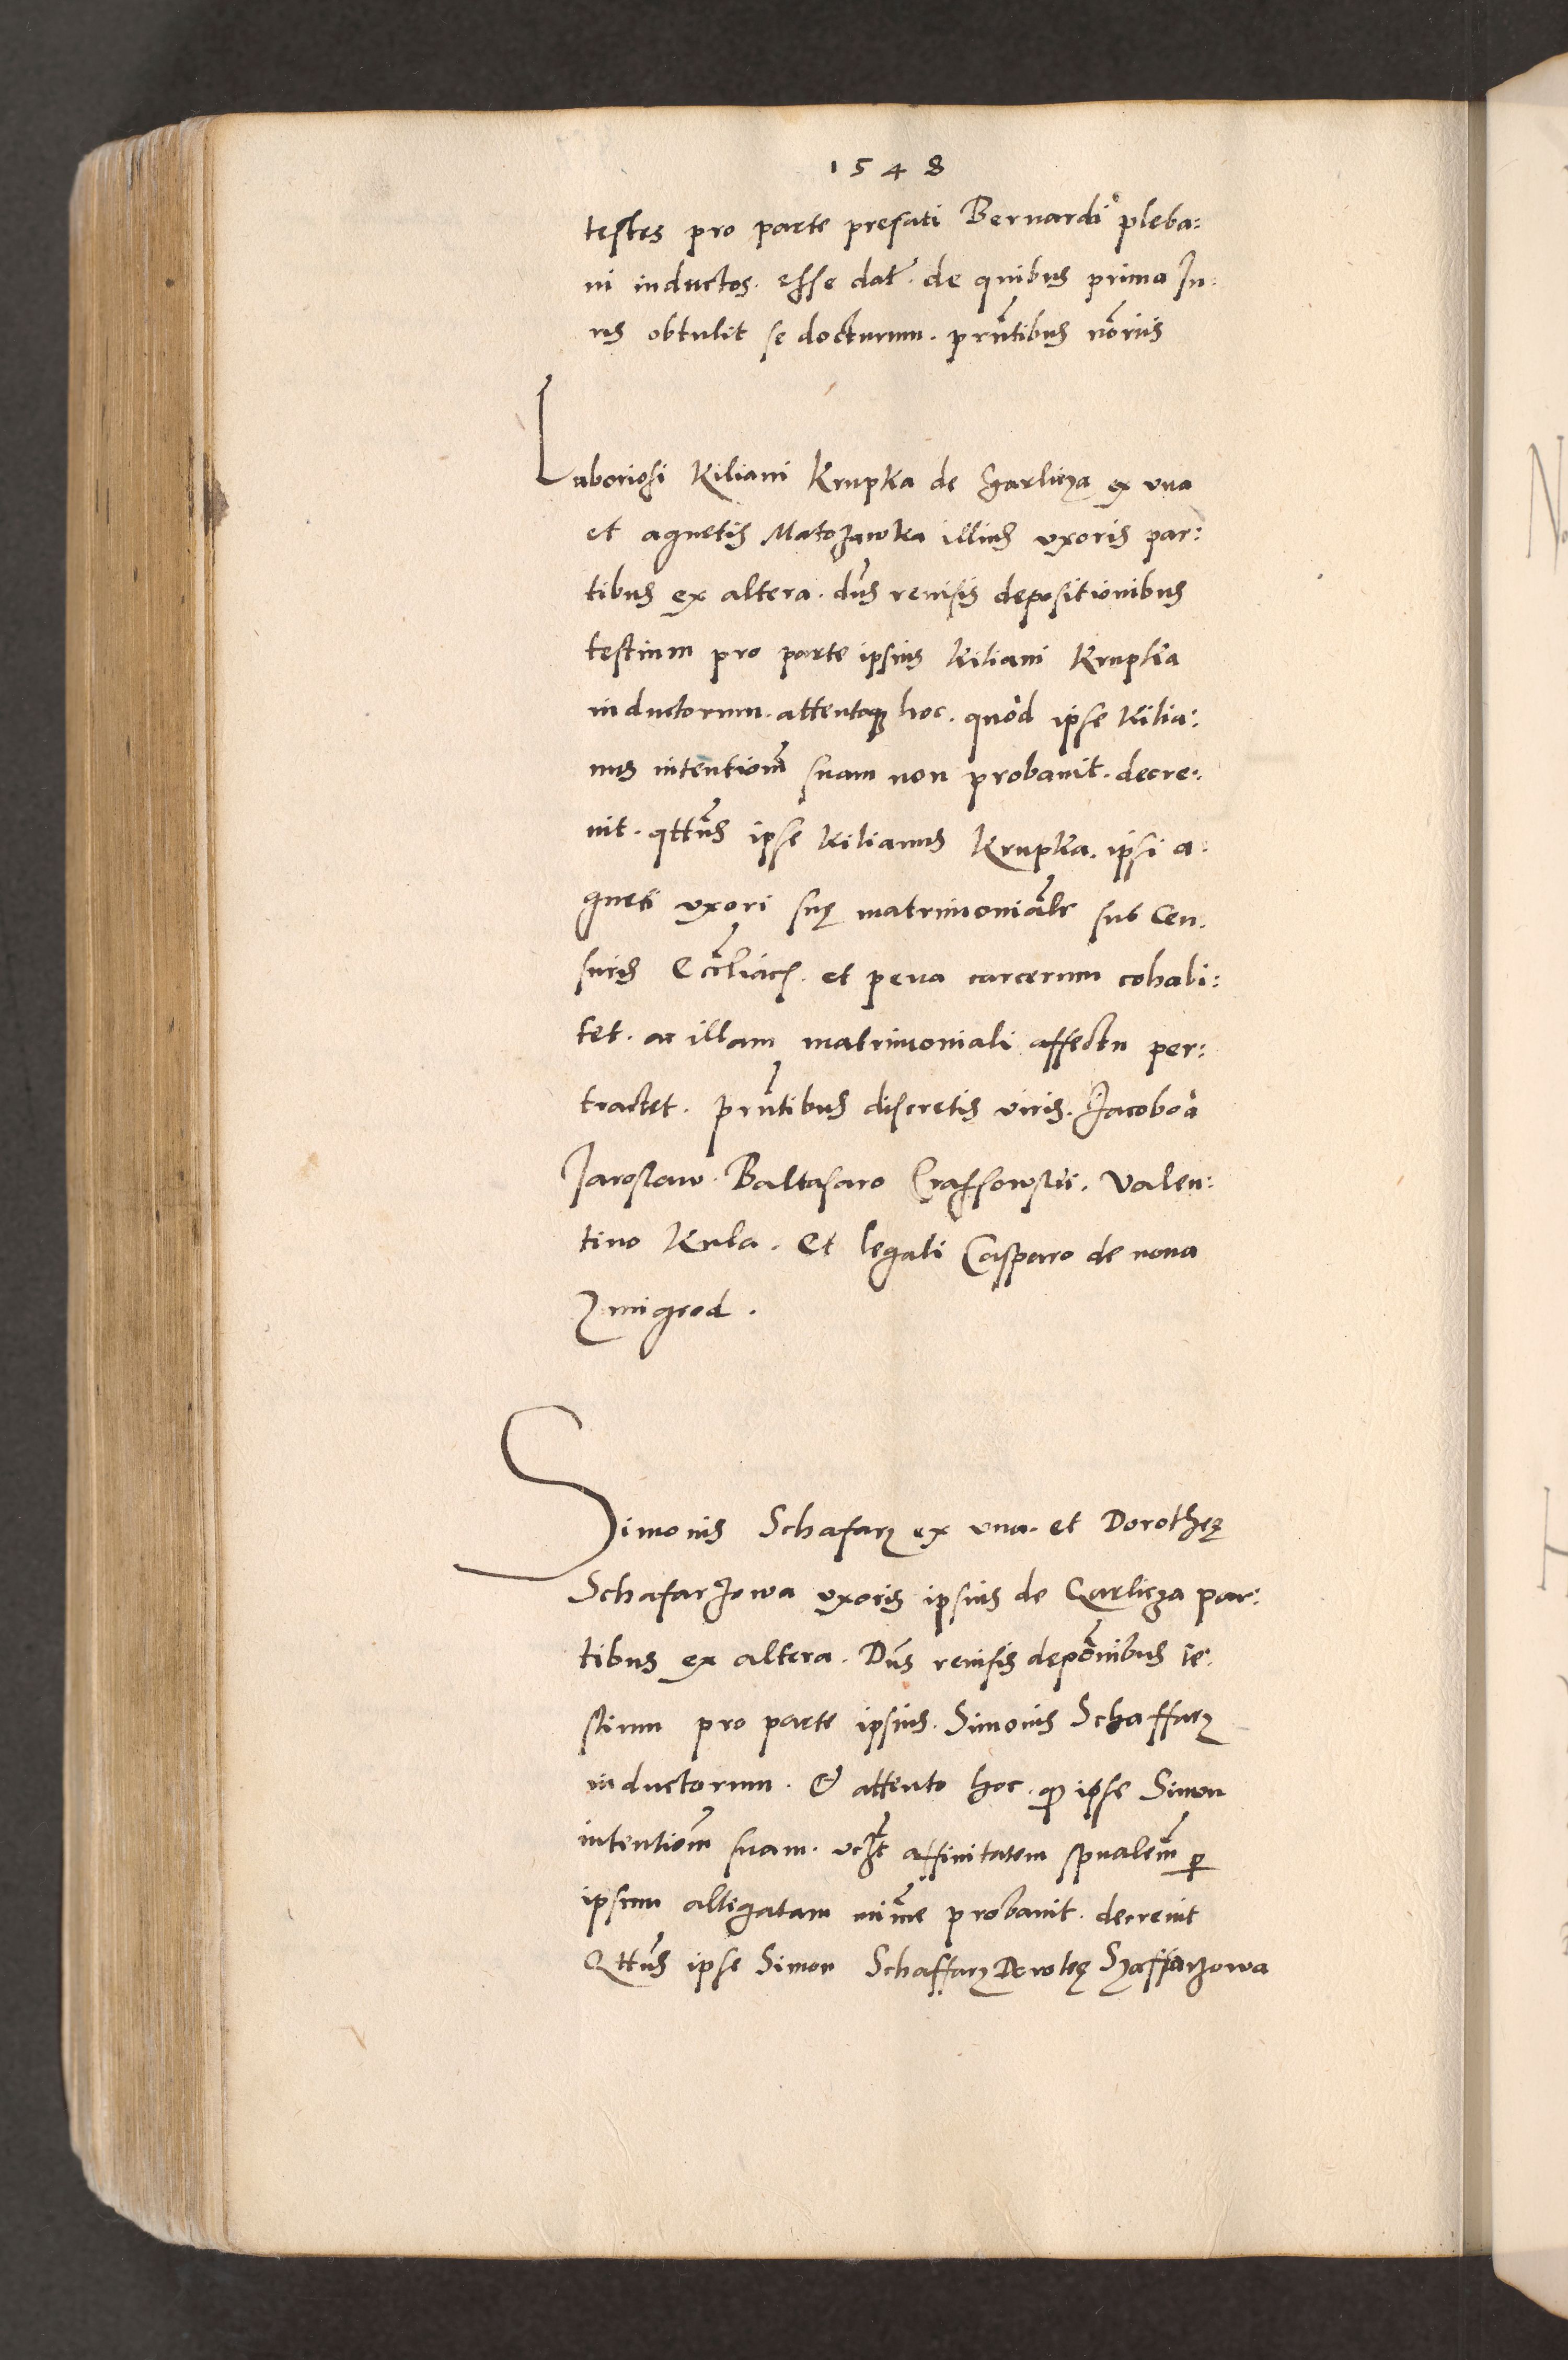 1548
testes pro parte prefati Bernardi pleba:
ni inductos. esse dat̃. de quibus prima Ju:
ris obtulit se docturum. prñtibus nõriis
Laboriosi Kiliani Krupka de Garlicza ex vna
et agnetis Matojawka illius vxoris par:
tibus ex altera. dñs reuisis depositionibus
testium pro parte ipsius Kiliani Krupka
inductorum. attentoqꝫ hoc. quòd ipse Kilia:
nus intentionẽ suam non probauit. decre:
uit. qttñs ipse Kilianus Krupka. ipsi a:
gneti vxori suę matrimoniãlr sub Cen.
suris Ecc̃liacis. et pena carcerum cohabi:
tet. ac illam matrimoniali affectu per:
tractet. prñtibus discretis viris. Jacobo à
Jaroslaw. Baltasaro Crassowski. Valen:
tino Kula. Et legali Casparo de noua
Zmigrod.
Simonis Schafarz ex vna. et Dorotheę
Schafarzowa vxoris ipsius de Garlicza par:
tibus ex altera. Dñs reuisis depõnibus te.
stium pro parte ipsius. Simonis Schaffarz
inductorum. Et attento hoc. ꝙ ipse Simon
intentionẽ suam. vczt affinitatem spũalem ꝑ
ipsum alligatam minime probauit. decreuit
Qttñs ipse Simon Schaffarz Doroteę Szaffarzowa